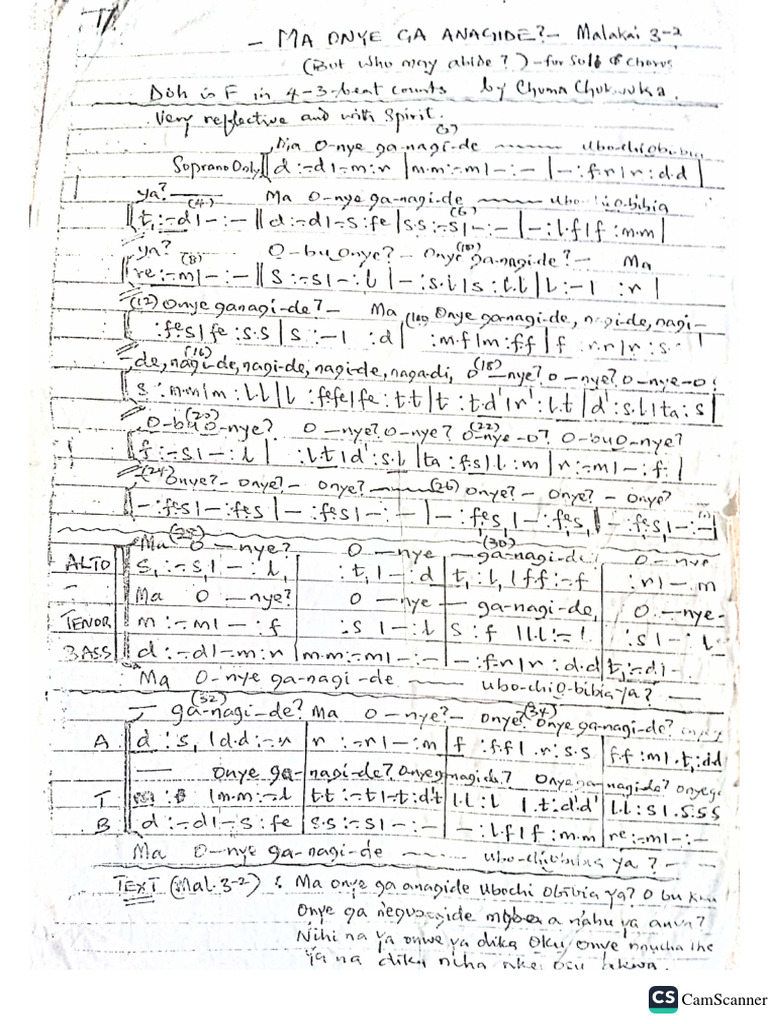 - MA ONYE GA ANAGIDE? - Malakai 3-2
(But who may abide?) - for Solo & Chorus
Doh is F in 4-3-beat counts by Chuma Chukwuka.
Very reflective and with Spirit.
(2)
Ma O-nye ga-nagi-de ubo-chi Obi-bia
Soprano Only d :-d|-:m:r |m.m:-m|-:- |-:f.r|r:d.d |
ya? (4) Ma O-nye ga-nagi-de ubo-chi O-bibia
t,:-d|-:- || d:-d|-s:fe |s.s:-s|-:- |-:l.f|f:m.m|
(6)
ya? (8) O-bu Onye? - Onye ga-nagi-de? - Ma
(10)
re:-m|-:- || s:-s|-:l |-:s.l|s:l.l |l:-| :r |
(12) Onye ganagi-de? - Ma (14) Onye ga-nagi-de, nagi-de, nagi-
:fe.s|fe:s.s |s:-| :d | :m.f|m:f.f |f :r.r|r:s.
de, nagi-de, nagi-de, nagi-de, nagi-di, O-nye? O-nye? O-nye-O?
(16) (18)
s:m.m|m:l.l |l:fefe|fe:t.t |t:t.d'|r':l.t |d':s.l|ta:s|
O-bu O-nye? O-nye? O-nye? O-nye-O? O-bu O-nye?
(20) (22)
f:-s|-:l | :l.t|d':s.l |ta:f.s|l:m |r:-m|-:f |
(24) Onye? - Onye? - Onye? (26) Onye? - Onye? - Onye?
|-:fes|-:fes |-:fes|-:- |-:fes,|-:fes,|-:fes,|-:-|
(28) (30)
Ma O-nye? O-nye ga-nagi-de, O-nye
ALTO s,:-s,|-:l, :t,|-:d t,:l,|f f:-f :r|-m
Ma O-nye? O-nye ga-nagi-de, O-nye-
TENOR m:-m|-:f :s|-:l s:f |l.l:-l :s|-:l
BASS d:-d|-m:r m.m:-m|-:- -:f.r|r:d.d t,:-d|-
Ma O-nye ga-nagi-de ubo-chi O-bibia ya?
(32) (34)
ga-nagi-de? Ma O-nye? - Onye? Onye ga-nagi-de?
A d:s,|d.d:-r r:-r|-:m f:f.f|.r:s.s f.f:m|.t,:dd
Onye ga-nagi-de? Onyeganagide? Onye ga-nagide? Onyega
T |m.m:-l t.t:-t|-t:d't l.l:l |.t:d'd' l.l:s|.s:ss
B d:-d|-s:fe s.s:-s|-:- -:l.f|f:m.m re:-m|-:-
Ma O-nye ga-nagi-de ubo-chi Obibia ya? -
TEXT (Mal. 3-2): Ma onye ga anagide ubochi Obibia ya? O bu
Onye ga neguzogide mgbe a nahu ya anya?
Nihi na Ya onwe ya dika Oku onye nnucha ihe
Ya na dika ncha nke
CS CamScanner